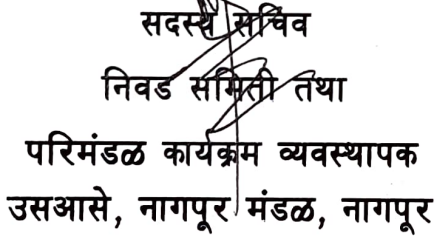 सदस्य सचिव
निवड समिती तथा
परिमंडळ कार्यक्रम व्यवस्थापक
उसआसे, नागपूर मंडळ, नागपूर